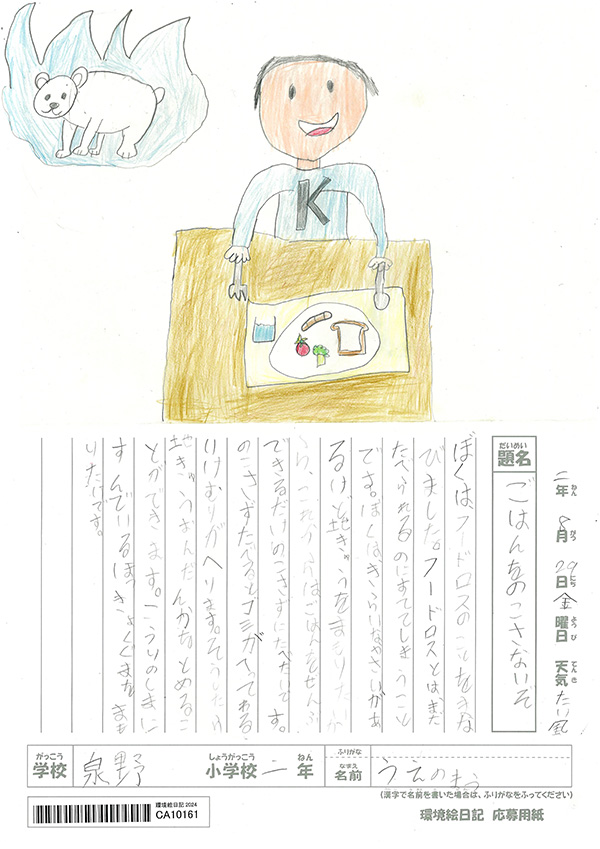 K
二年 8月 29日 金曜日 天気 たい風
ねん がつ にち ようび てんき
だいめい
題名 ごはんをのこさないぞ
ぼくは、フードロスのことをまな
びました。フードロスとは、まだ
たべられるのにすててしまうこと
です。ぼくは、きらいなやさいがあ
るけど地きゅうをまもりたいか
ら、これからはごはんをぜんぶ
できるだけのこさずにたべたいです。
のこさずたべるとゴミがへってもえる
けむりがへります。そうしたら
地きゅうおんだんかをとめるこ
とができます。こうりのしまに
すんでいるほっきょくぐまをまも
りたいです。
がっこう しょうがっこう ねん ふりがな
学校 泉野 小学校 二年 なまえ 名前 うえの
(漢字で名前を書いた場合は、ふりがなをふってください)
環境絵日記 2024
CA10161
環境絵日記 応募用紙